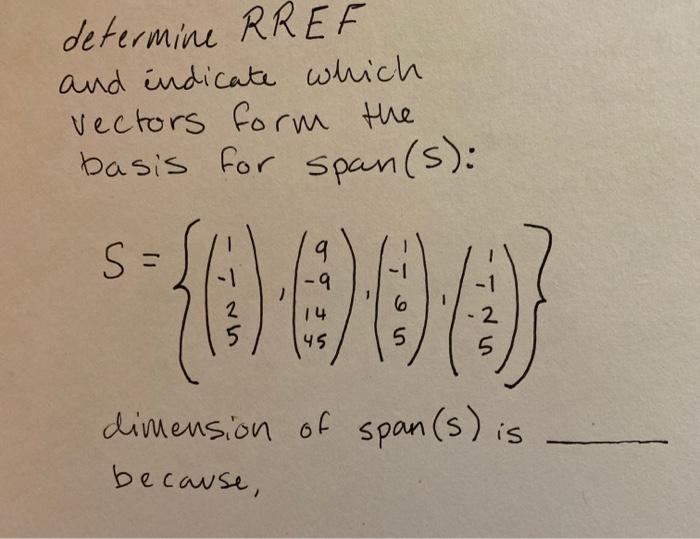 determine RREF
and indicate which
vectors form the
basis for span(s):
S = { (1 -1 2 5), (9 -9 14 45), (1 -1 6 5), (1 -1 -2 5) }
dimension of span(s) is ______
because,